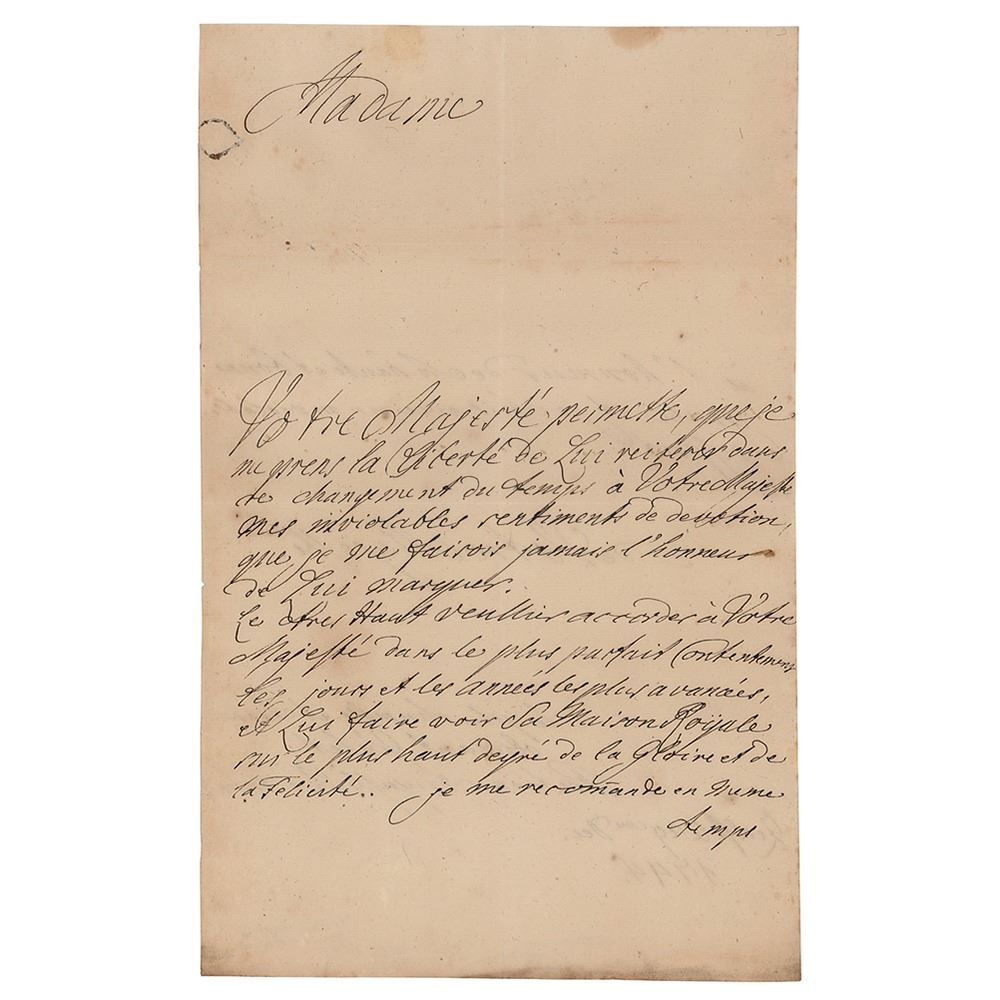 Madame
Votre Majesté permette, que je
me prens la Liberté de Lui reiterer dans
ce changement du temps à Votre Majesté
mes inviolables sentiments de devotion,
que je me faisois jamais l'honneur
de Lui marquer.
Le tres Haut veullier accorder à Votre
Majesté dans le plus parfait Contentement
les jours et les années les plus avancées,
et Lui faire voir Sa Maison Roÿale
sur le plus haut degré de la Gloire et de
la Felicité.. je me recom̄ande en meme
temps